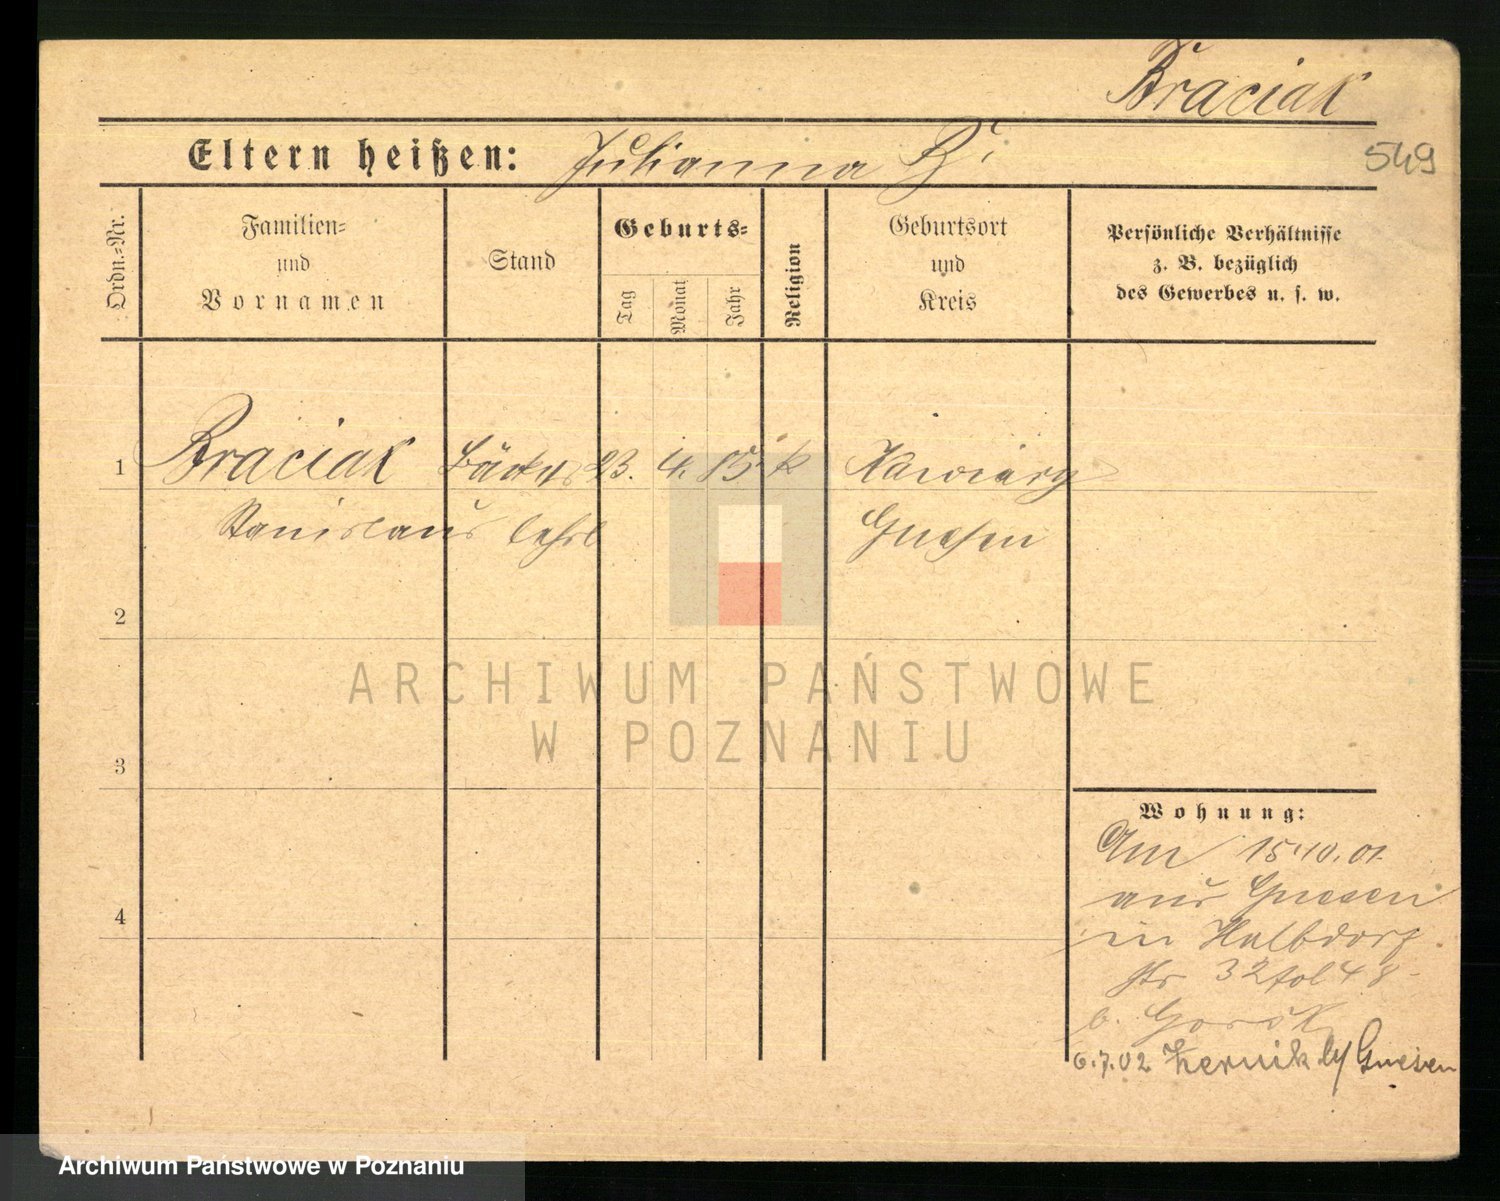 Braciak
Eltern heißen: Julianna B.
549
Ordn.=Nr.
Familien=
und
Vornamen
Stand
Geburts=
Tag
Monat
Jahr
Religion
Geburtsort
und
Kreis
Persönliche Verhältnisse
z. B. bezüglich
des Gewerbes u. s. w.
1 Braciak Bäcker 23. 4. 85 k
Stanislaus lehrl Gnesen
2
3
4
Wohnung:
Am 15.10.01.
aus Gnesen
in Halbdorf
str 32
b.
6.7.02 Zernik b/ Gnesen
ARCHIWUM PAŃSTWOWE
W POZNANIU
Archiwum Państwowe w Poznaniu